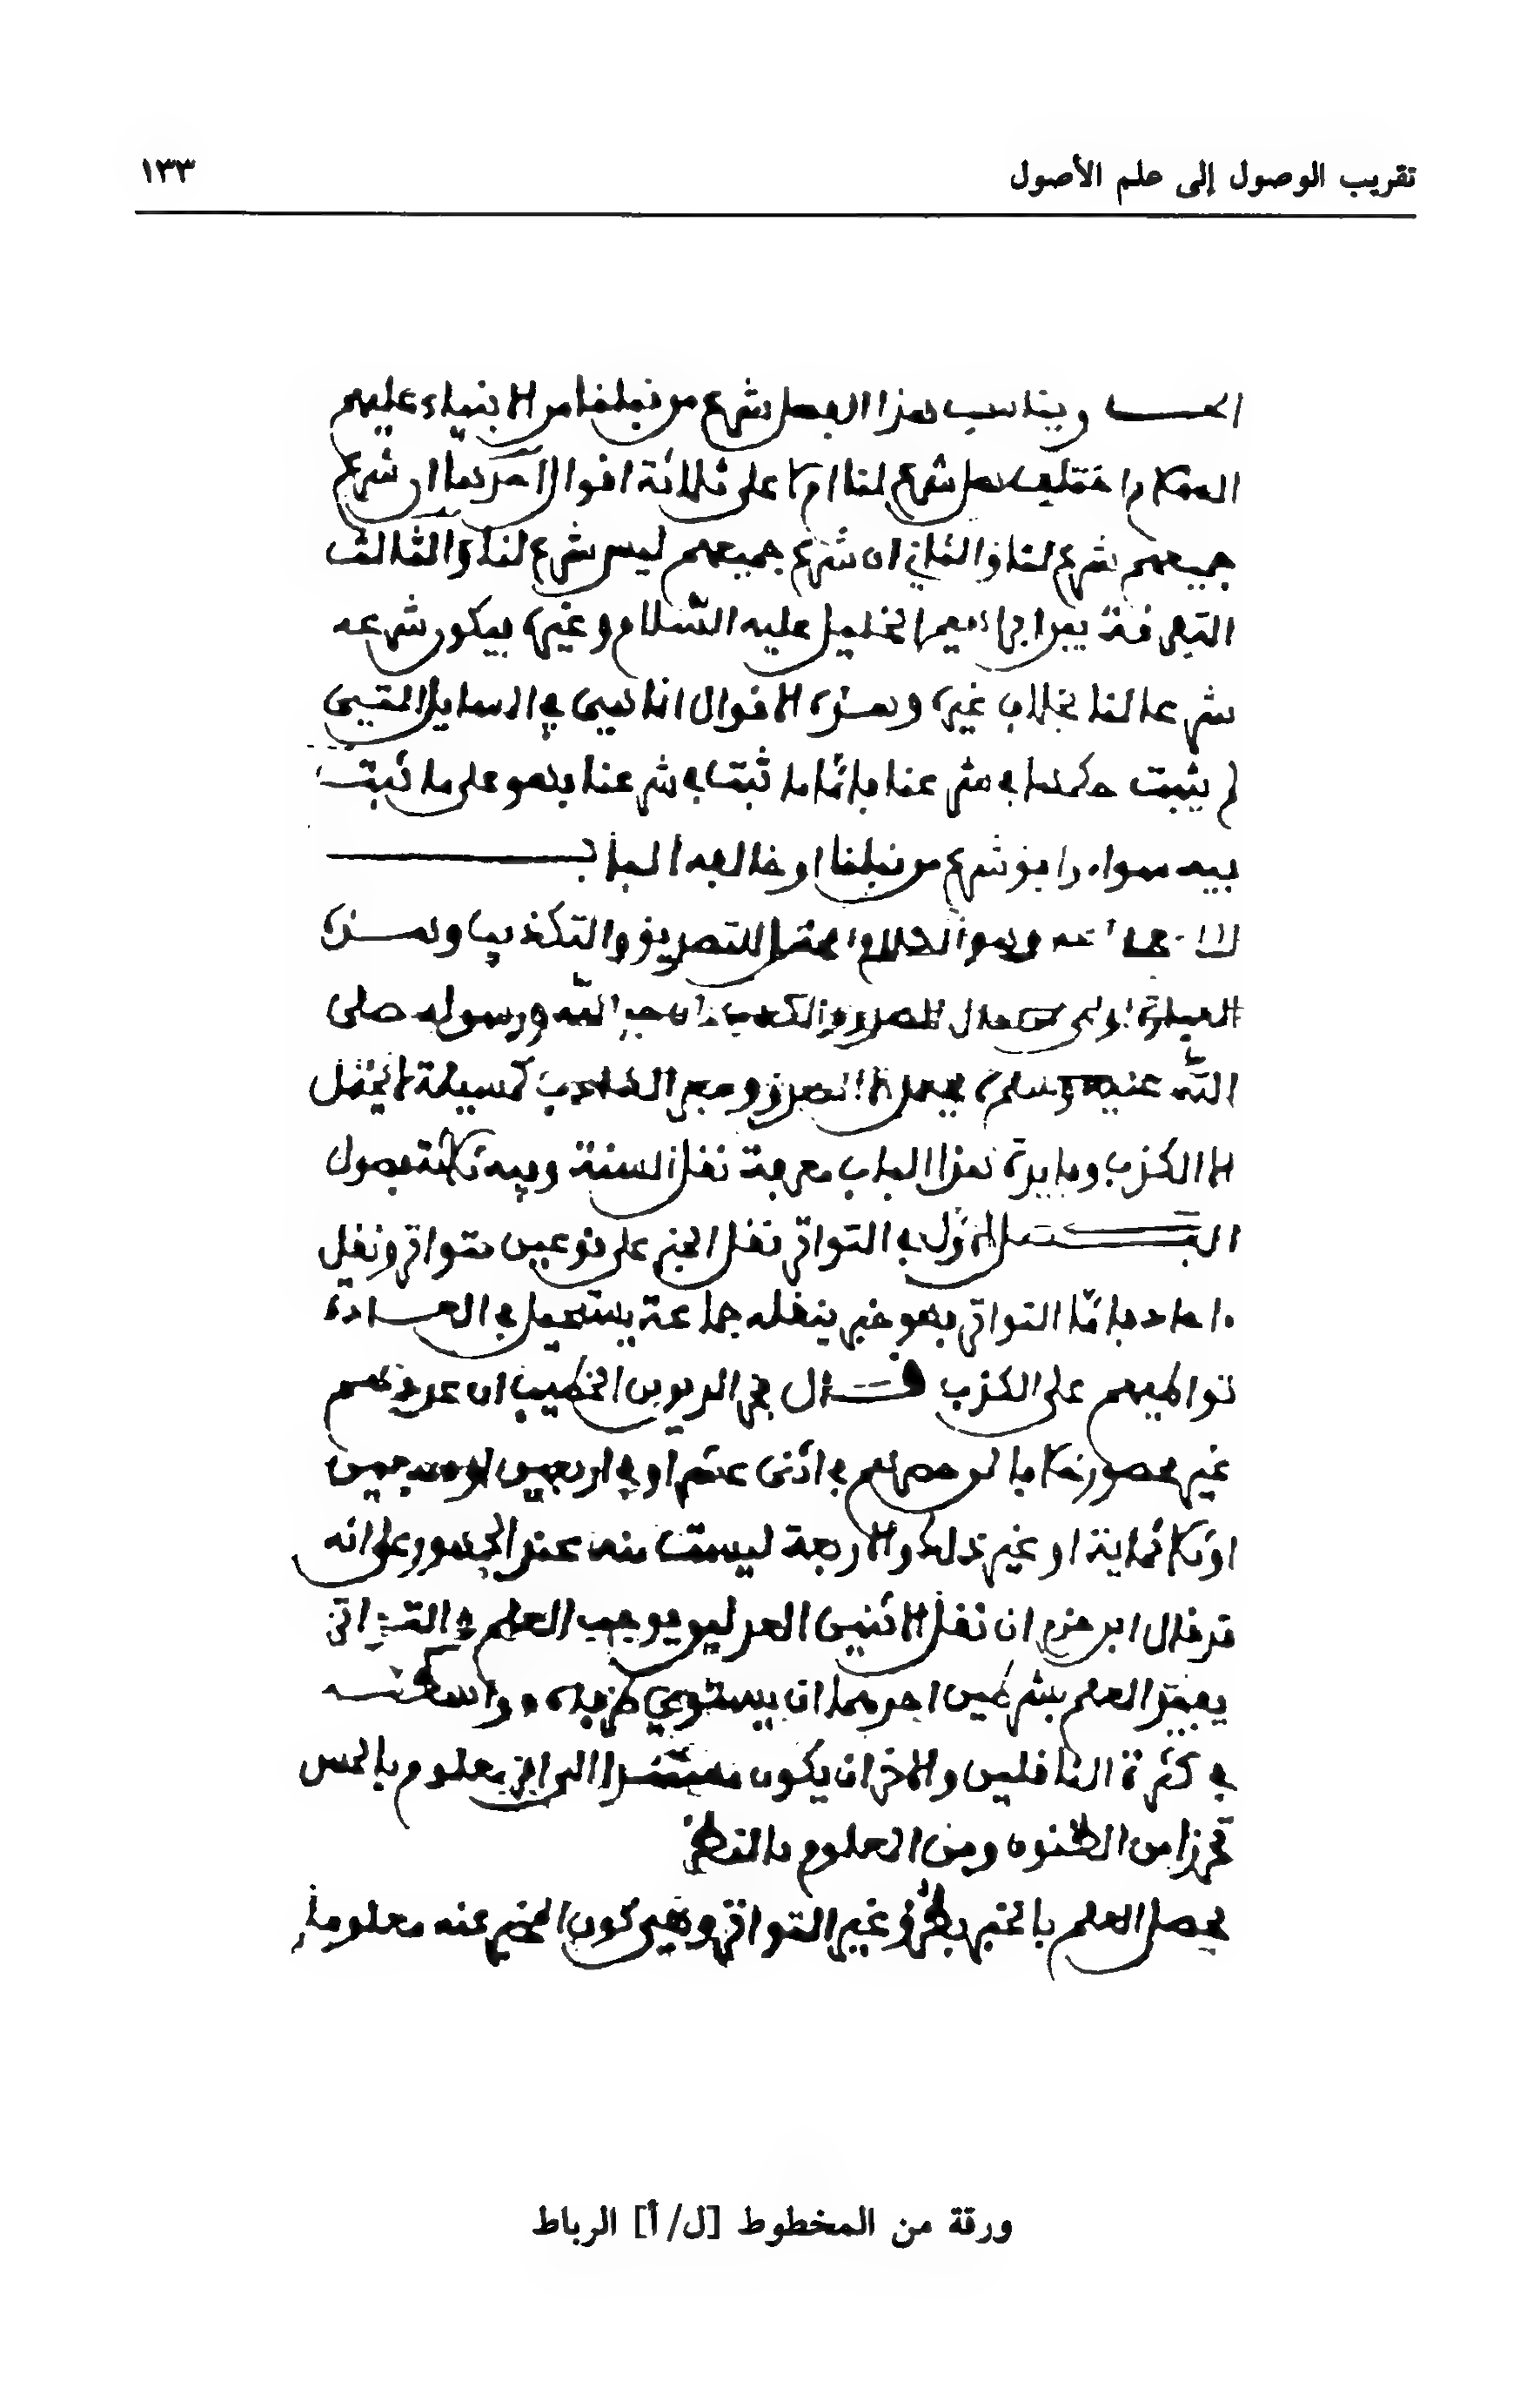 تقريب الوصول إلى علم الأصول
١٣٣
ويناسب هذا الفصل شرع من قبلنا من الانبياء عليهم
السلام واختلف هل شرع لنا ام لا على ثلاثة اقوال احدها ان شرع
جميعهم شرع لنا والثاني ان شرع جميعهم ليس شرع لنا والثالث
التفرقة بين ابراهيم الخليل عليه السّلام وغيره فيكون شرعه
شرعا لنا بخلاف غيره وهذه الاقوال انما هي في المسايل التي
لم يثبت حكمها في شرعنا فأمّا ما ثبت في شرعنا فهو على ما ثبت
فيه سواء وافق شرع من قبلنا او خالفه الباب
وهو الكلام المحتمل للتصديق والتكذيب وهذه
العبارة اولى من للصدق والكذب لان خبر الله ورسوله صلى
الله عليه وسلم لا يحتمل الا الصدق وخبر الكاذب كمسيلمة لا يحتمل
الا الكذب وفايدة هذا الباب معرفة نقل السنة وفيه ثلاثة فصول
الفصل الاول في التواتر نقل الخبر على نوعين متواتر ونقل
ءاحاد فامّا التواتر فهو خبر ينقله جماعة يستحيل في العادة
تواطيهم على الكذب قال فخر الدين بن الخطيب ان عددهم
غير محصور خلافا لمن حصرهم في اثنى عشر او في اربعين او سبعين
او ثلاثماية او غير ذلك والاربعة ليست منه عند الجمهور على انه
قد قال ابن حزم ان نقل الاثنين العدلين يوجب العلم والتواتر
يفيد العلم بشرطين احدهما ان يستوي طرفاه وواسطته
في كثرة الناقلين والاخر ان يكون مستندا الى امر معلوم بالحس
تحرزا من الظنون ومن المعلوم بالنظر
يحصل العلم بالخبر بطرق غير التواتر وهي كون المخبر عنه معلوما
ورقة من المخطوط [ل/أ] الرباط